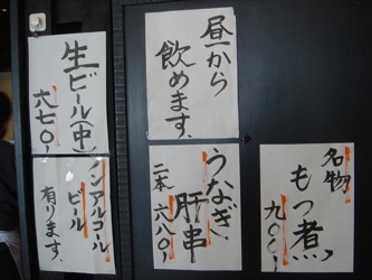 生ビール(中)
六七〇
ノンアルコール
ビール
有ります。
昼から
飲めます。
うなぎ
肝串
二本六八〇
名物
もつ煮
九〇〇